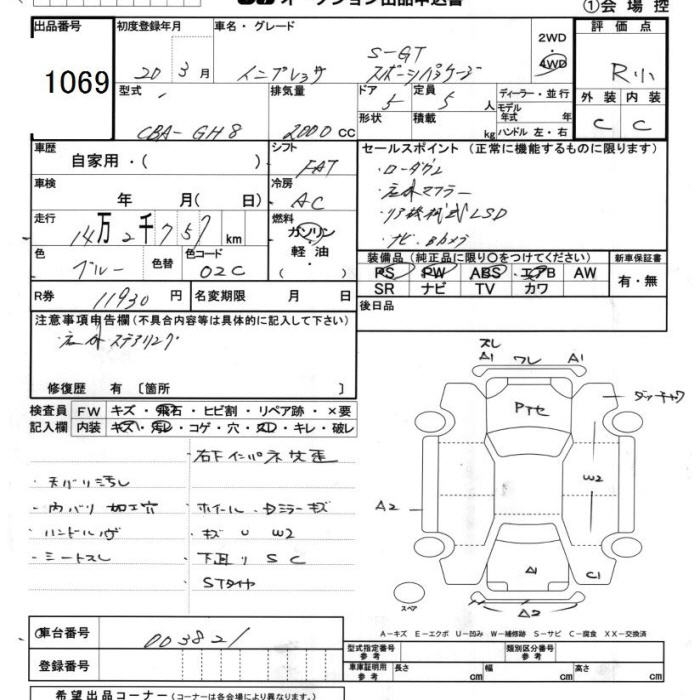 オークション出品申込書 ①会場控
出品番号 1069
初度登録年月 20年 3月
車名・グレード インプレッサ S-GT スポーツパッケージ
2WD
4WD
評価点 R小
型式 CBA-GH8
排気量 2000 CC
ドア 5
定員 5人
ディーラー・並行
形状
積載 kg
モデル年式 年
ハンドル 左・右
外装 C
内装 C
車歴 自家用・( )
シフト FAT
セールスポイント (正常に機能するものに限ります)
・ローダウン
・社外マフラー
・機械式LSD
・ナビ・Bカメラ
車検 年 月( 日)
冷房 AC
走行 14万2千757km
燃料 ガソリン
軽油
( )
色 ブルー
色替
色コード 02C
装備品 (純正品に限り○をつけてください)
PS PW ABS エアB AW
SR ナビ TV カワ
新車保証書
有・無
R券 11930 円
名変期限 月 日
後日品
注意事項申告欄 (不具合内容等は具体的に記入して下さい)
社外ステアリング
修復歴 有 〔箇所 〕
検査員記入欄
FW キズ・飛石・ヒビ割・リペア跡・×要
内装 キズ・汚レ・コゲ・穴・スレ・キレ・破レ
右下インパネ交歪
・天バリ汚し
・内バリ 加工穴
・ハンドル
・シートスレ
ホイール・Dミラーキズ
キズ U W2
下回り S C
STタイヤ
ズレ
A1 ワレ A1
Pイセ
W2
A2
A1
C1
A2
スペア
A-キズ E-エクボ U-凹み W-補修跡 S-サビ C-腐食 XX-交換済
車台番号 003821
登録番号
型式指定番号 参考
類別区分番号 参考
車庫証明用 参考 長さ cm 幅 cm 高さ cm
希望出品コーナー (コーナーは各会場により異なります。)